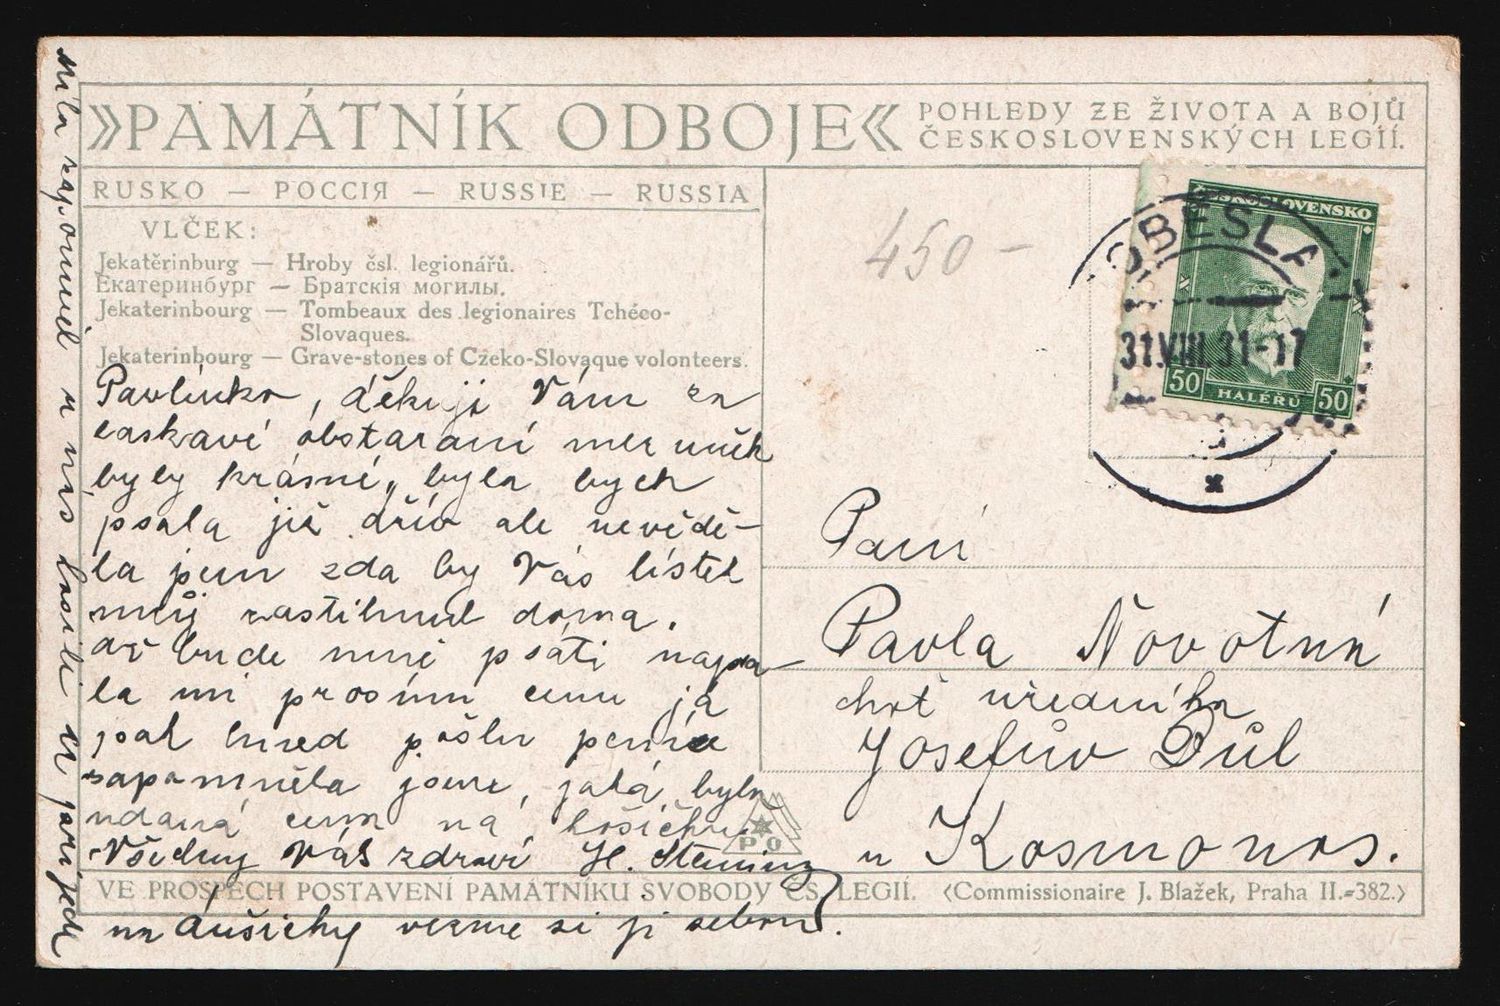 »PAMÁTNÍK ODBOJE«
POHLEDY ZE ŽIVOTA A BOJŮ
ČESKOSLOVENSKÝCH LEGIÍ.
RUSKO — РОССІЯ — RUSSIE — RUSSIA
VLČEK:
Jekatěrinburg — Hroby čsl. legionářů.
Екатеринбург — Братскія могилы.
Jekaterinbourg — Tombeaux des legionaires Tchéco-
Slovaques.
Jekaterinbourg — Grave-stones of Czeko-Slovaque volonteers.
Pavlinko, děkuji Vám za
laskavé obstarání meruněk
byly krásné, byla bych
psala již dřív ale nevědě-
la jsem zda by Vás lístek
můj zastihnul doma.
až bude mně psáti napsa-
la mi prosím cenu já
pak hned pošlu peníze
zapomněla jsem, jaká byla
udaná cena na košíčku.
Všechny Vás zdraví H.
na dušičky vezme si ji sebou.
Míla zapomněl u nás
450 –
ČESKOSLOVENSKO
50 HALÉŘŮ 50
SOBĚSLA
31.VIII.31-17
Paní
Pavla Novotná
choť úředníka
Josefův Důl
u Kosmonos.
PO
VE PROSPĚCH POSTAVENÍ PAMÁTNÍKU SVOBODY ČS. LEGIÍ.
(Commissionaire J. Blažek, Praha II.-382.)